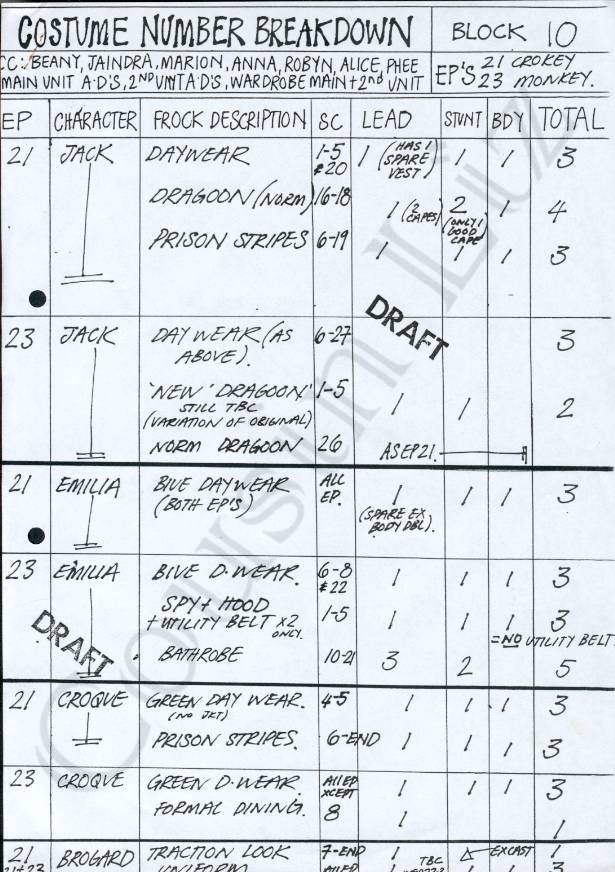 COSTUME NUMBER BREAKDOWN BLOCK 10
CC: BEANY, JAINDRA, MARION, ANNA, ROBYN, ALICE, PHEE
MAIN UNIT A.D'S, 2ND UNIT A.D'S, WARDROBE MAIN + 2nd UNIT
EP'S 21 CROKEY
23 MONKEY.
EP CHARACTER FROCK DESCRIPTION SC LEAD STUNT BDY TOTAL
21 JACK DAYWEAR 1-5 & 20 1 (HAS 1 SPARE VEST) 1 1 3
DRAGOON (NORM) 16-18 1 (2 CAPES) 2 (ONLY 1 GOOD CAPE) 1 4
PRISON STRIPES 6-19 1 1 1 3
DRAFT
23 JACK DAY WEAR (AS 6-27 3
ABOVE).
'NEW' DRAGOON' 1-5 1 1 2
STILL TBC
(VARIATION OF ORIGINAL)
NORM DRAGOON 26 AS EP 21.
21 EMILIA BLUE DAYWEAR ALL EP. 1 1 1 3
(BOTH EP'S) (SPARE EX BODY DBL).
23 EMILIA BLUE D.WEAR. 6-8 & 22 1 1 1 3
SPY + HOOD
+ UTILITY BELT x2 ONLY. 1-5 1 1 1 3
= NO UTILITY BELT
DRAFT
BATHROBE 10-21 3 2 5
21 CROQUE GREEN DAY WEAR. 4-5 1 1 1 3
(NO JKT)
PRISON STRIPES. 6-END 1 1 1 3
23 CROQUE GREEN D.WEAR. ALL EP XCEPT 8 1 1 1 3
FORMAL DINING. 8 1 1
21 BROGARD TRACTION LOOK 7-END 1 EXCAST 1 1
21+23 UNIFORM ALL EP TBC 1 1 3
Cousin Liz